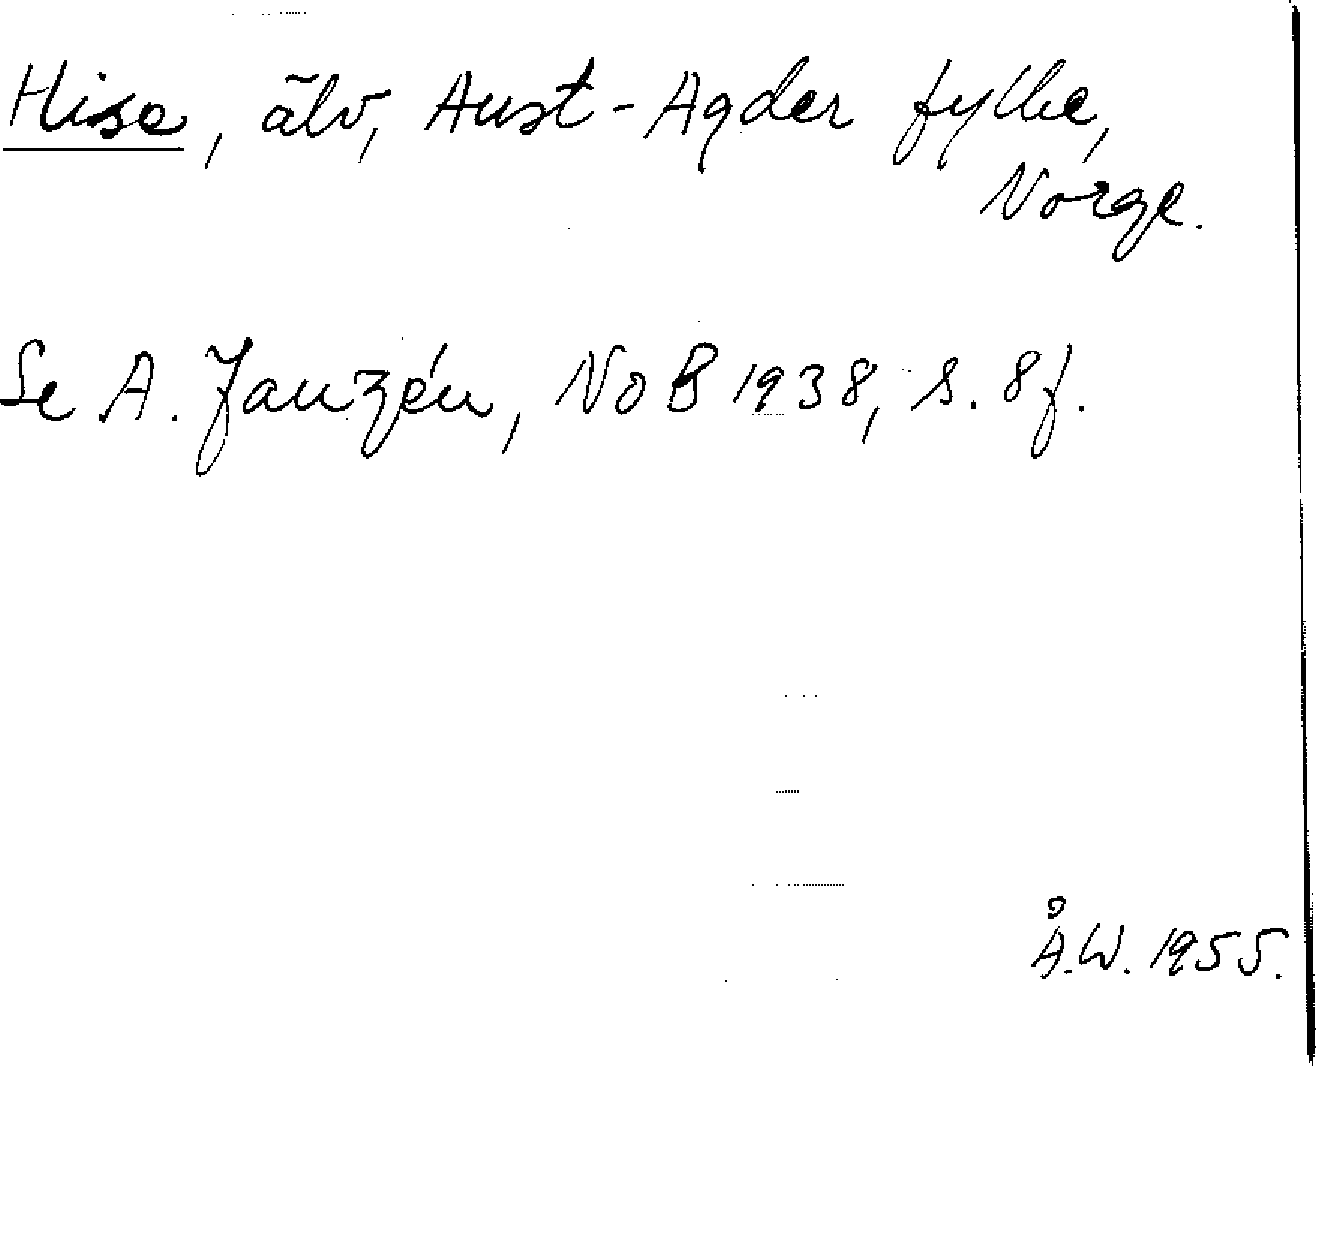 Hise, älv, Aust-Agder fylke,
Norge.
Se A. Janzén, NoB 1938, s. 8f.
Å.W. 1955.